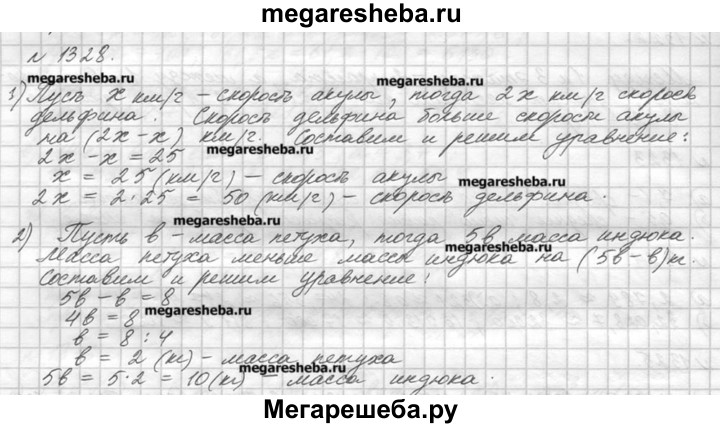 megaresheba.ru
№ 1328.
megaresheba.ru megaresheba.ru
1) Пусть x км/г – скорость акулы, тогда 2x км/г скорость
дельфина. Скорость дельфина больше скорости акулы
на (2x-x) км/г. Составим и решим уравнение:
2x - x = 25 megaresheba.ru
x = 25 (км/г) – скорость акулы megaresheba.ru
2x = 2·25 = 50 (км/г) – скорость дельфина.
megaresheba.ru
2) Пусть b – масса петуха, тогда 5b масса индюка.
megaresheba.ru
Масса петуха меньше массы индюка на (5b-b) кг.
Составим и решим уравнение:
5b - b = 8
4b = 8 megaresheba.ru
b = 8 : 4
b = 2 (кг) – масса петуха
megaresheba.ru
5b = 5·2 = 10 (кг) – масса индюка.
Мегарешеба.ру